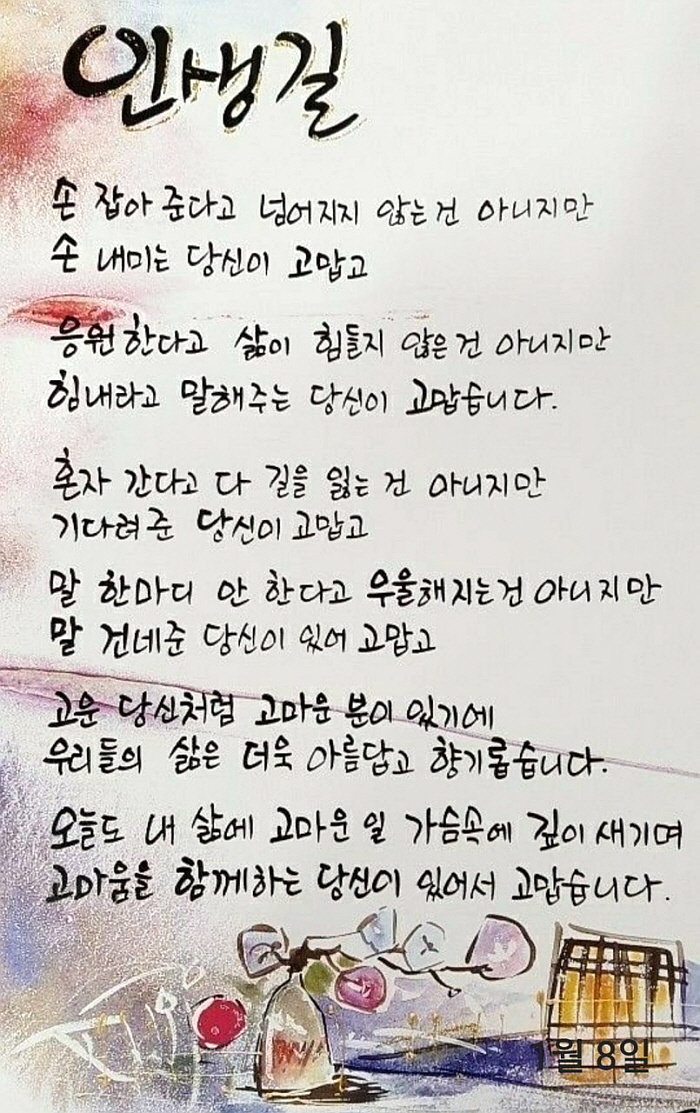 인생길
손 잡아 준다고 넘어지지 않는건 아니지만
손 내미는 당신이 고맙고
응원한다고 삶이 힘들지 않은건 아니지만
힘내라고 말해주는 당신이 고맙습니다.
혼자 간다고 다 길을 잃는 건 아니지만
기다려준 당신이 고맙고
말 한마디 안 한다고 우울해지는건 아니지만
말 건네준 당신이 있어 고맙고
고운 당신처럼 고마운 분이 있기에
우리들의 삶은 더욱 아름답고 향기롭습니다.
오늘도 내 삶에 고마운 일 가슴속에 깊이 새기며
고마움을 함께하는 당신이 있어서 고맙습니다.
1월 8일